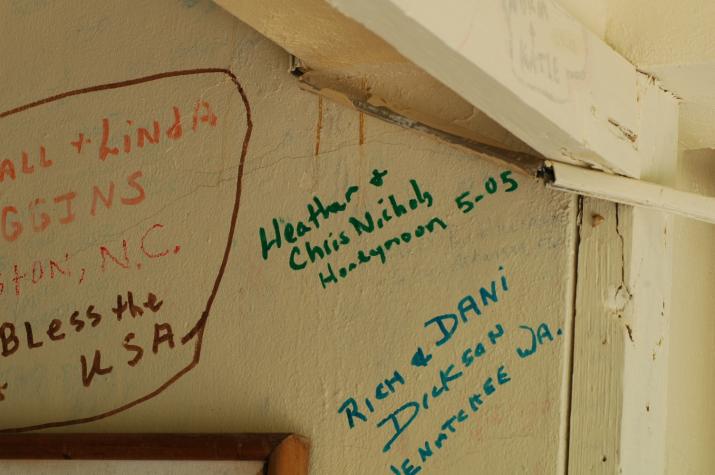 ALL + LiNdA
GGINS
STON, N.C.
BLess the
USA
Heather +
Chris Nichols
Honeymoon 5-05
RICH & DANi
DICKSON
WENATCHEE WA.
NORM
+
KATIE